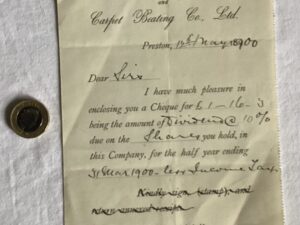 and
Carpet Beating Co., Ltd.
Preston, 12th May 1900
Dear Sirs
I have much pleasure in
enclosing you a Cheque for £1-16-3
being the amount of Dividend @ 10%
due on the Shares you hold, in
this Company, for the half year ending
31 Mar 1900. less Income Tax.
Kindly sign (stamp), and